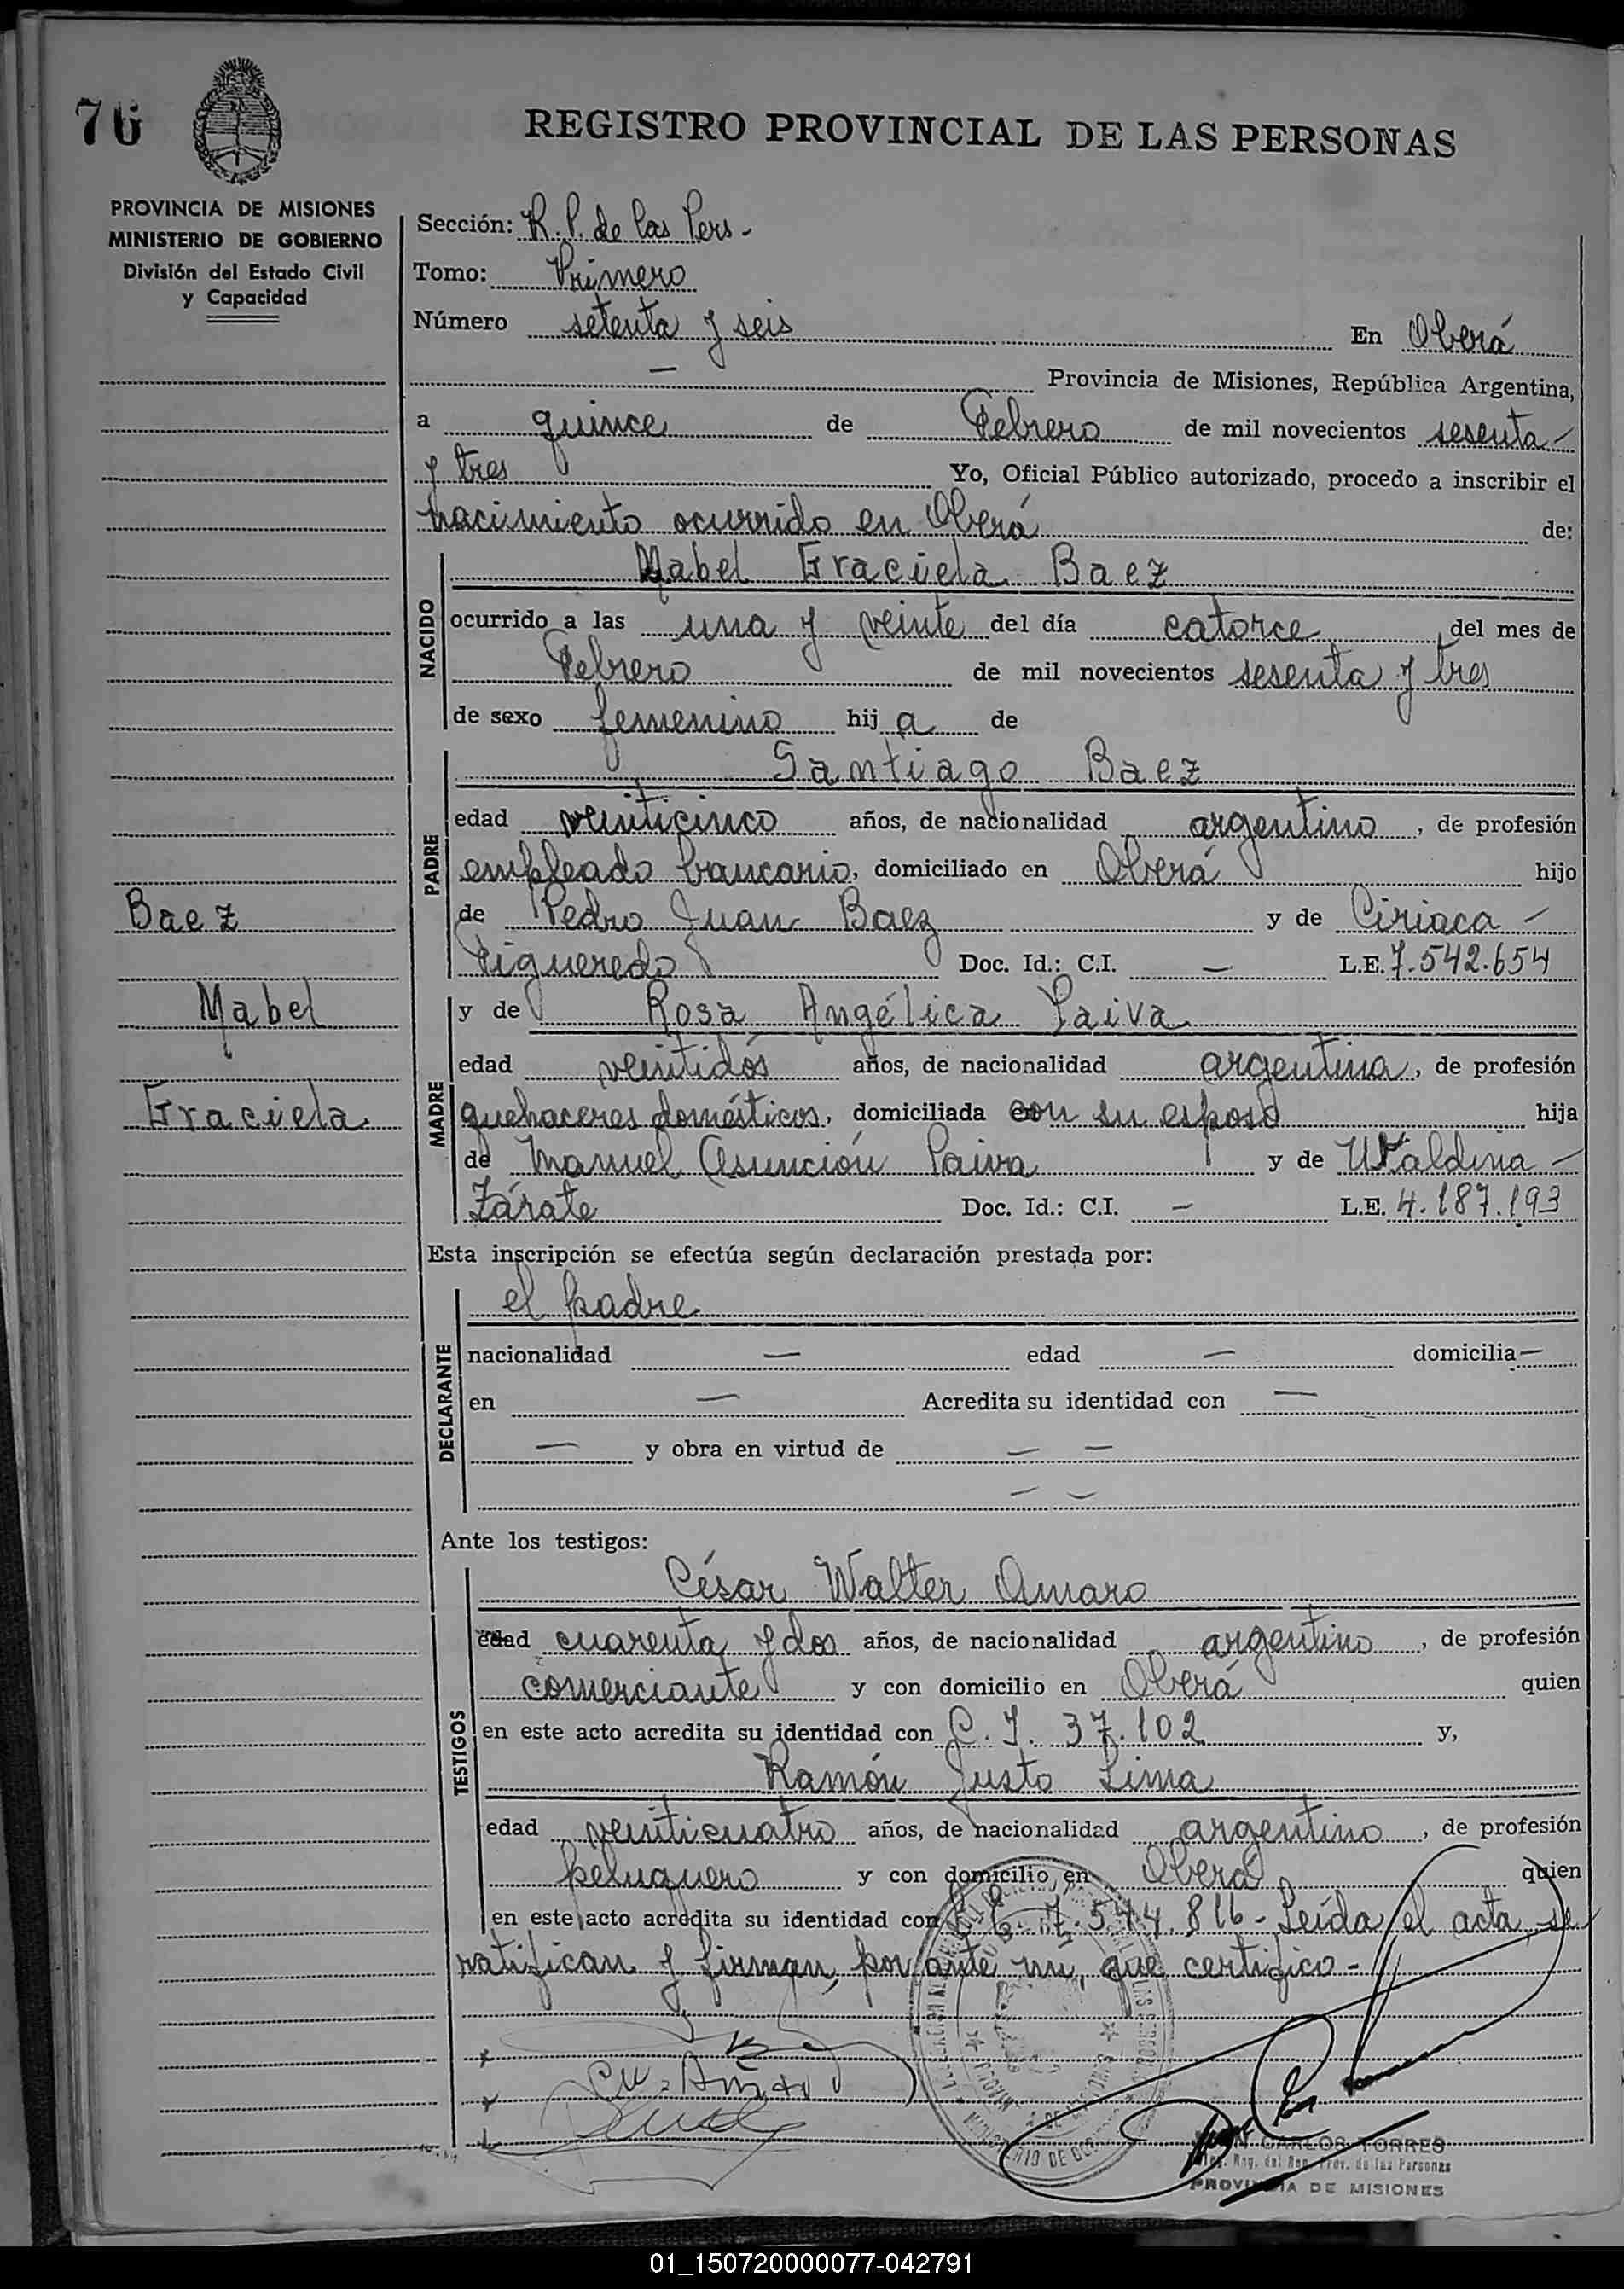 76
REGISTRO PROVINCIAL DE LAS PERSONAS
PROVINCIA DE MISIONES
MINISTERIO DE GOBIERNO
División del Estado Civil
y Capacidad
Sección: R. P. de las Pers -
Tomo: Primero
Número setenta y seis En Oberá
— Provincia de Misiones, República Argentina,
a quince de Febrero de mil novecientos sesenta -
y tres Yo, Oficial Público autorizado, procedo a inscribir el
nacimiento ocurrido en Oberá de:
NACIDO
Mabel Graciela Baez
ocurrido a las una y veinte del día catorce del mes de
Febrero de mil novecientos sesenta y tres
de sexo femenino hij a de
PADRE
Santiago Baez
edad veinticinco años, de nacionalidad argentino, de profesión
empleado bancario, domiciliado en Oberá hijo
Baez
de Pedro Juan Baez y de Ciriaca -
Figueredo Doc. Id.: C.I. — L.E. 7.542.654
Mabel
MADRE
y de Rosa Angélica Paiva
edad veintidós años, de nacionalidad argentina, de profesión
Graciela
quehaceres domésticos, domiciliada con su esposo hija
de Manuel Asunción Paiva y de Ubaldina -
Zárate Doc. Id.: C.I. — L.E. 4.187.193
Esta inscripción se efectúa según declaración prestada por:
DECLARANTE
el padre
nacionalidad — edad — domicilia —
en — Acredita su identidad con —
— y obra en virtud de — —
— —
Ante los testigos:
TESTIGOS
César Walter Amaro
edad cuarenta y dos años, de nacionalidad argentino, de profesión
comerciante y con domicilio en Oberá quien
en este acto acredita su identidad con C. I. 37.102 y,
Ramón Justo Lima
edad veinticuatro años, de nacionalidad argentino, de profesión
peluquero y con domicilio en Oberá quien
en este acto acredita su identidad con L. E. 7.544.816 - Leída el acta, se
ratifican y firman, por ante mí, que certifico -
JUAN CARLOS TORRES
del Reg. Prov. de las Personas
PROVINCIA DE MISIONES
01_150720000077-042791